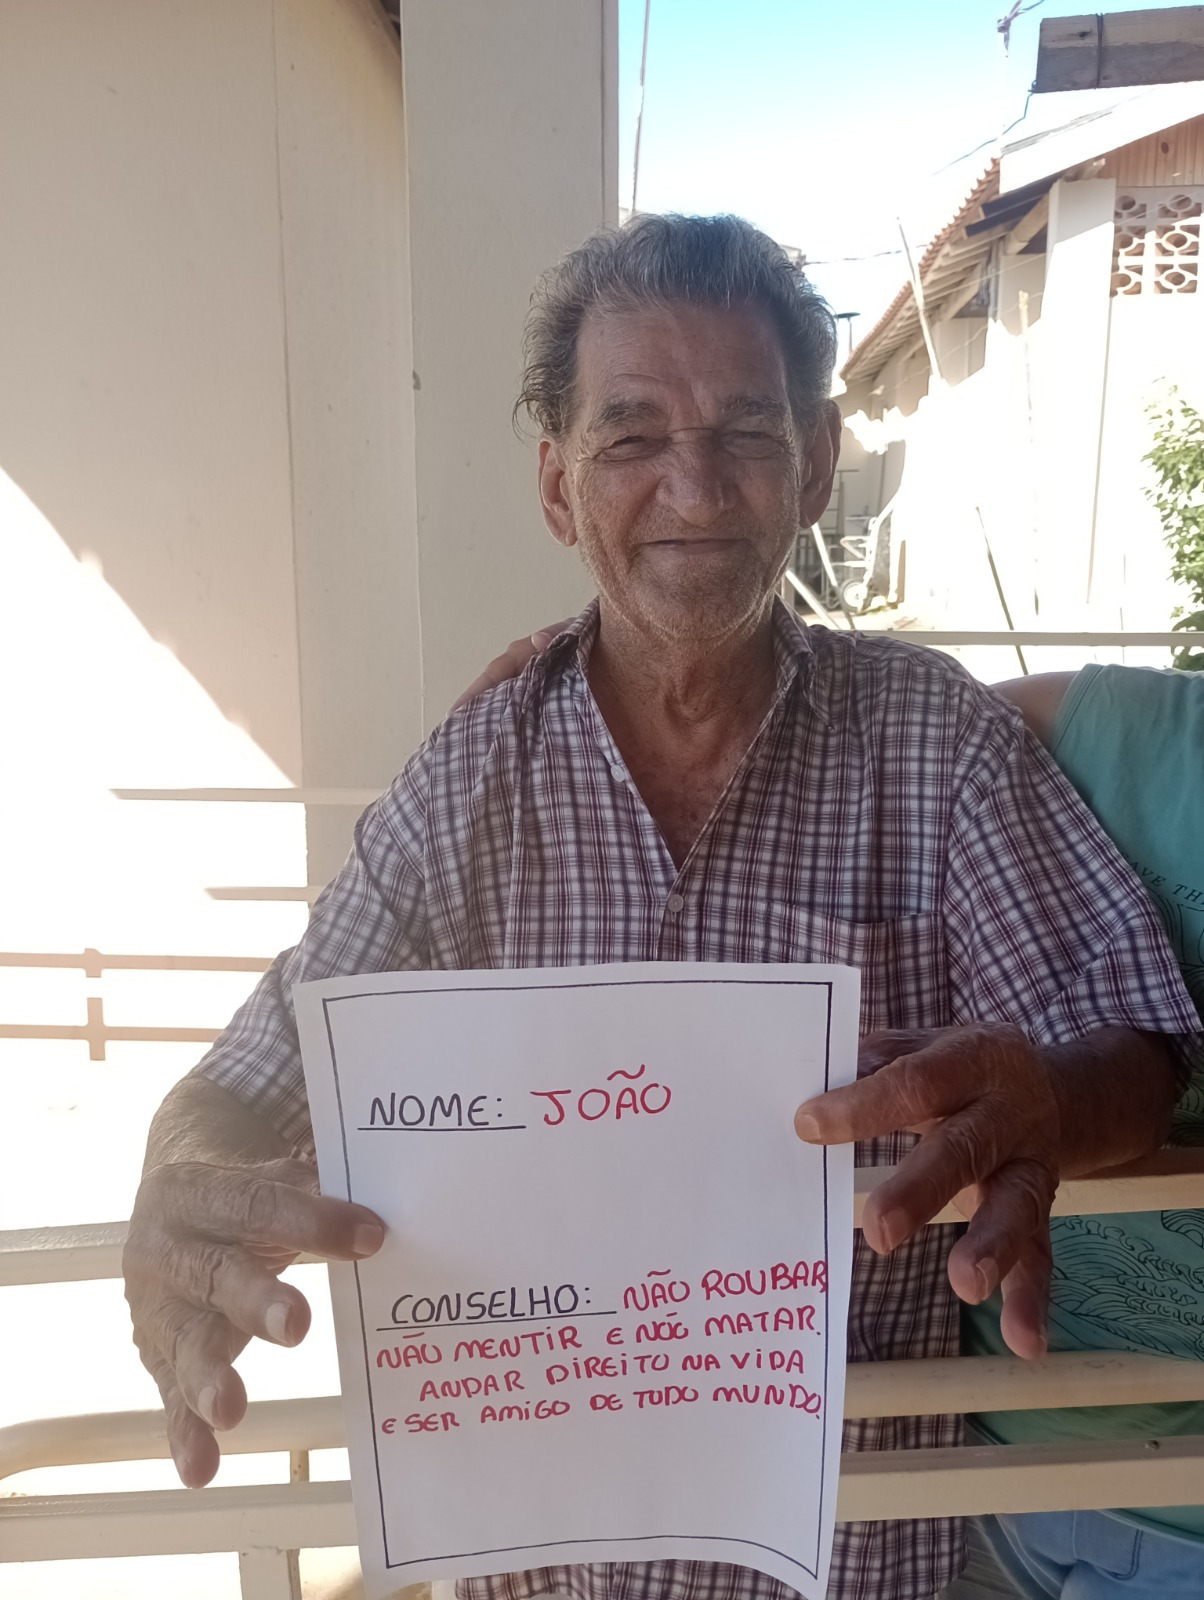 NOME: JOÃO
CONSELHO: NÃO ROUBAR,
NÃO MENTIR E NÃO MATAR.
ANDAR DIREITO NA VIDA
E SER AMIGO DE TUDO MUNDO.
AVE TH